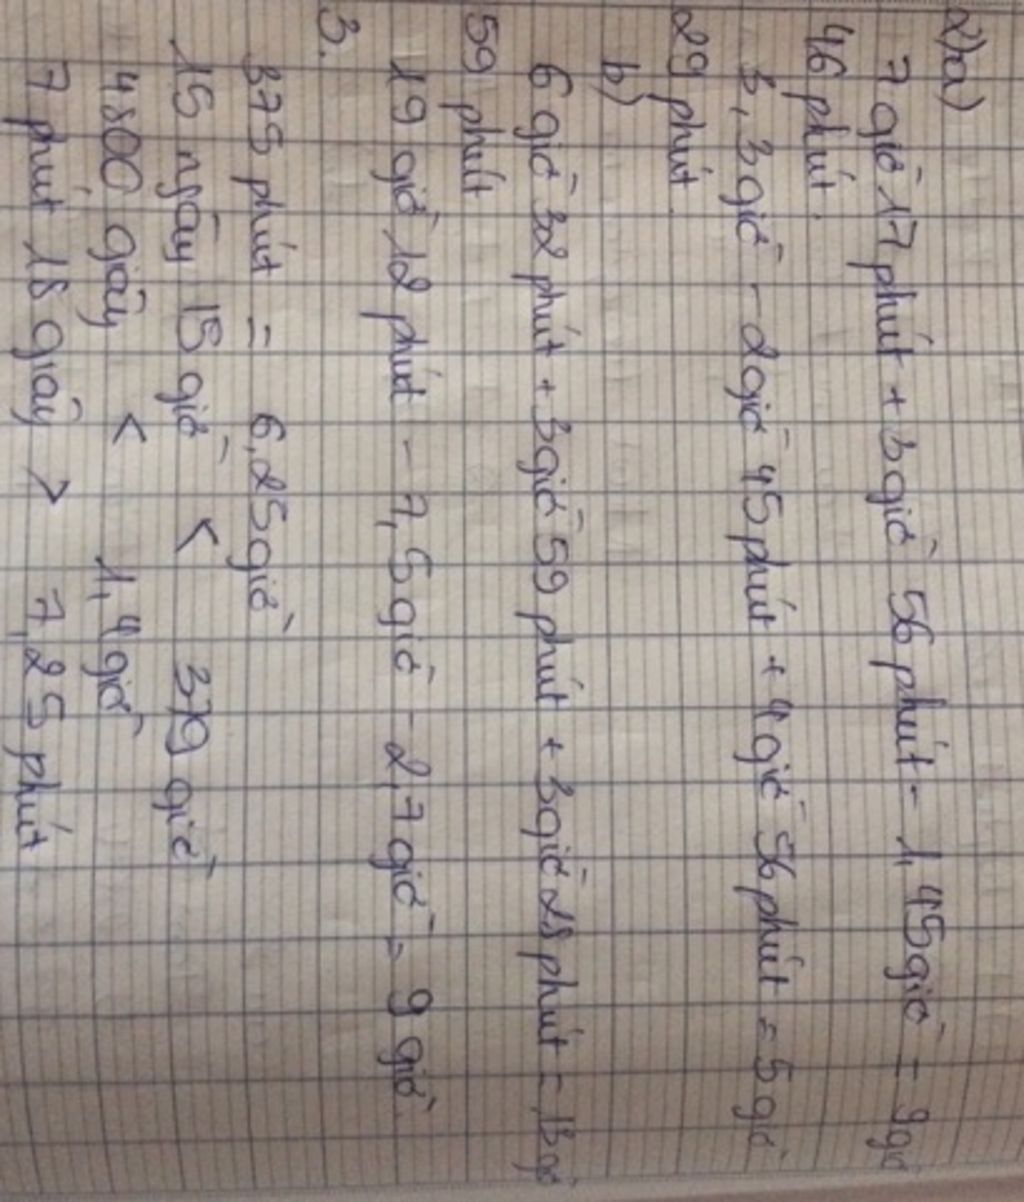 2)a)
7 giờ 17 phút + 3 giờ 56 phút - 1,45 giờ = 9 giờ
46 phút.
3,3 giờ - 2 giờ 45 phút + 4 giờ 56 phút = 5 giờ
29 phút.
b)
6 giờ 32 phút + 3 giờ 59 phút + 3 giờ 28 phút = 13 giờ
59 phút
19 giờ 12 phút - 7,5 giờ - 2,7 giờ = 9 giờ.
3.
375 phút = 6,25 giờ
15 ngày 15 giờ < 379 giờ
4800 giây < 1,4 giờ
7 phút 18 giây > 7,25 phút